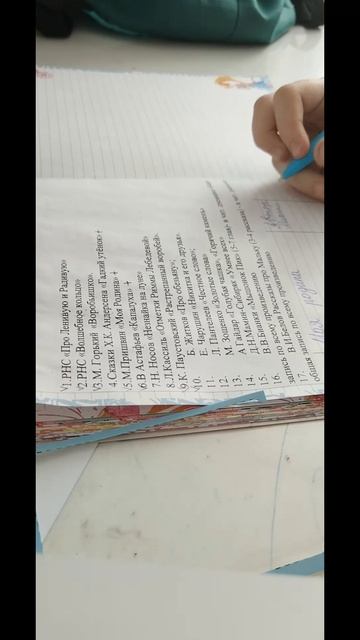 1.РНС «Про Ленивую и Радивую»
2.РНС «Волшебное кольцо»
3.М. Горький «Воробьишко»
4.Сказки Х.К. Андерсена «Гадкий утёнок» +
5.М.Пришвин «Моя Родина» +
6.В Астафьев «Капалуха» +
7.Н. Носов «Незнайка на луне»
8.Л.Кассиль «Отметки Риммы Лебедевой»
9.К. Паустовский «Растрепанный воробей»
10. Б. Житков «Про обезьянку»;
11. Е. Чарушин «Никита и его друзья»
12. Л. Пантелеев «Честное слово»;
13. М. Зощенко «Золотые слова»
14. А Гайдар «Голубая чашка», «Горячий камень»
15. Д.Н.Мамин-Сибиряк «Умнее всех»
16. В В.Бианки «Мышонок Пик»
запись по всему произведению
17. В И.Белов Рассказы про Мальку
общая запись по всему произведению